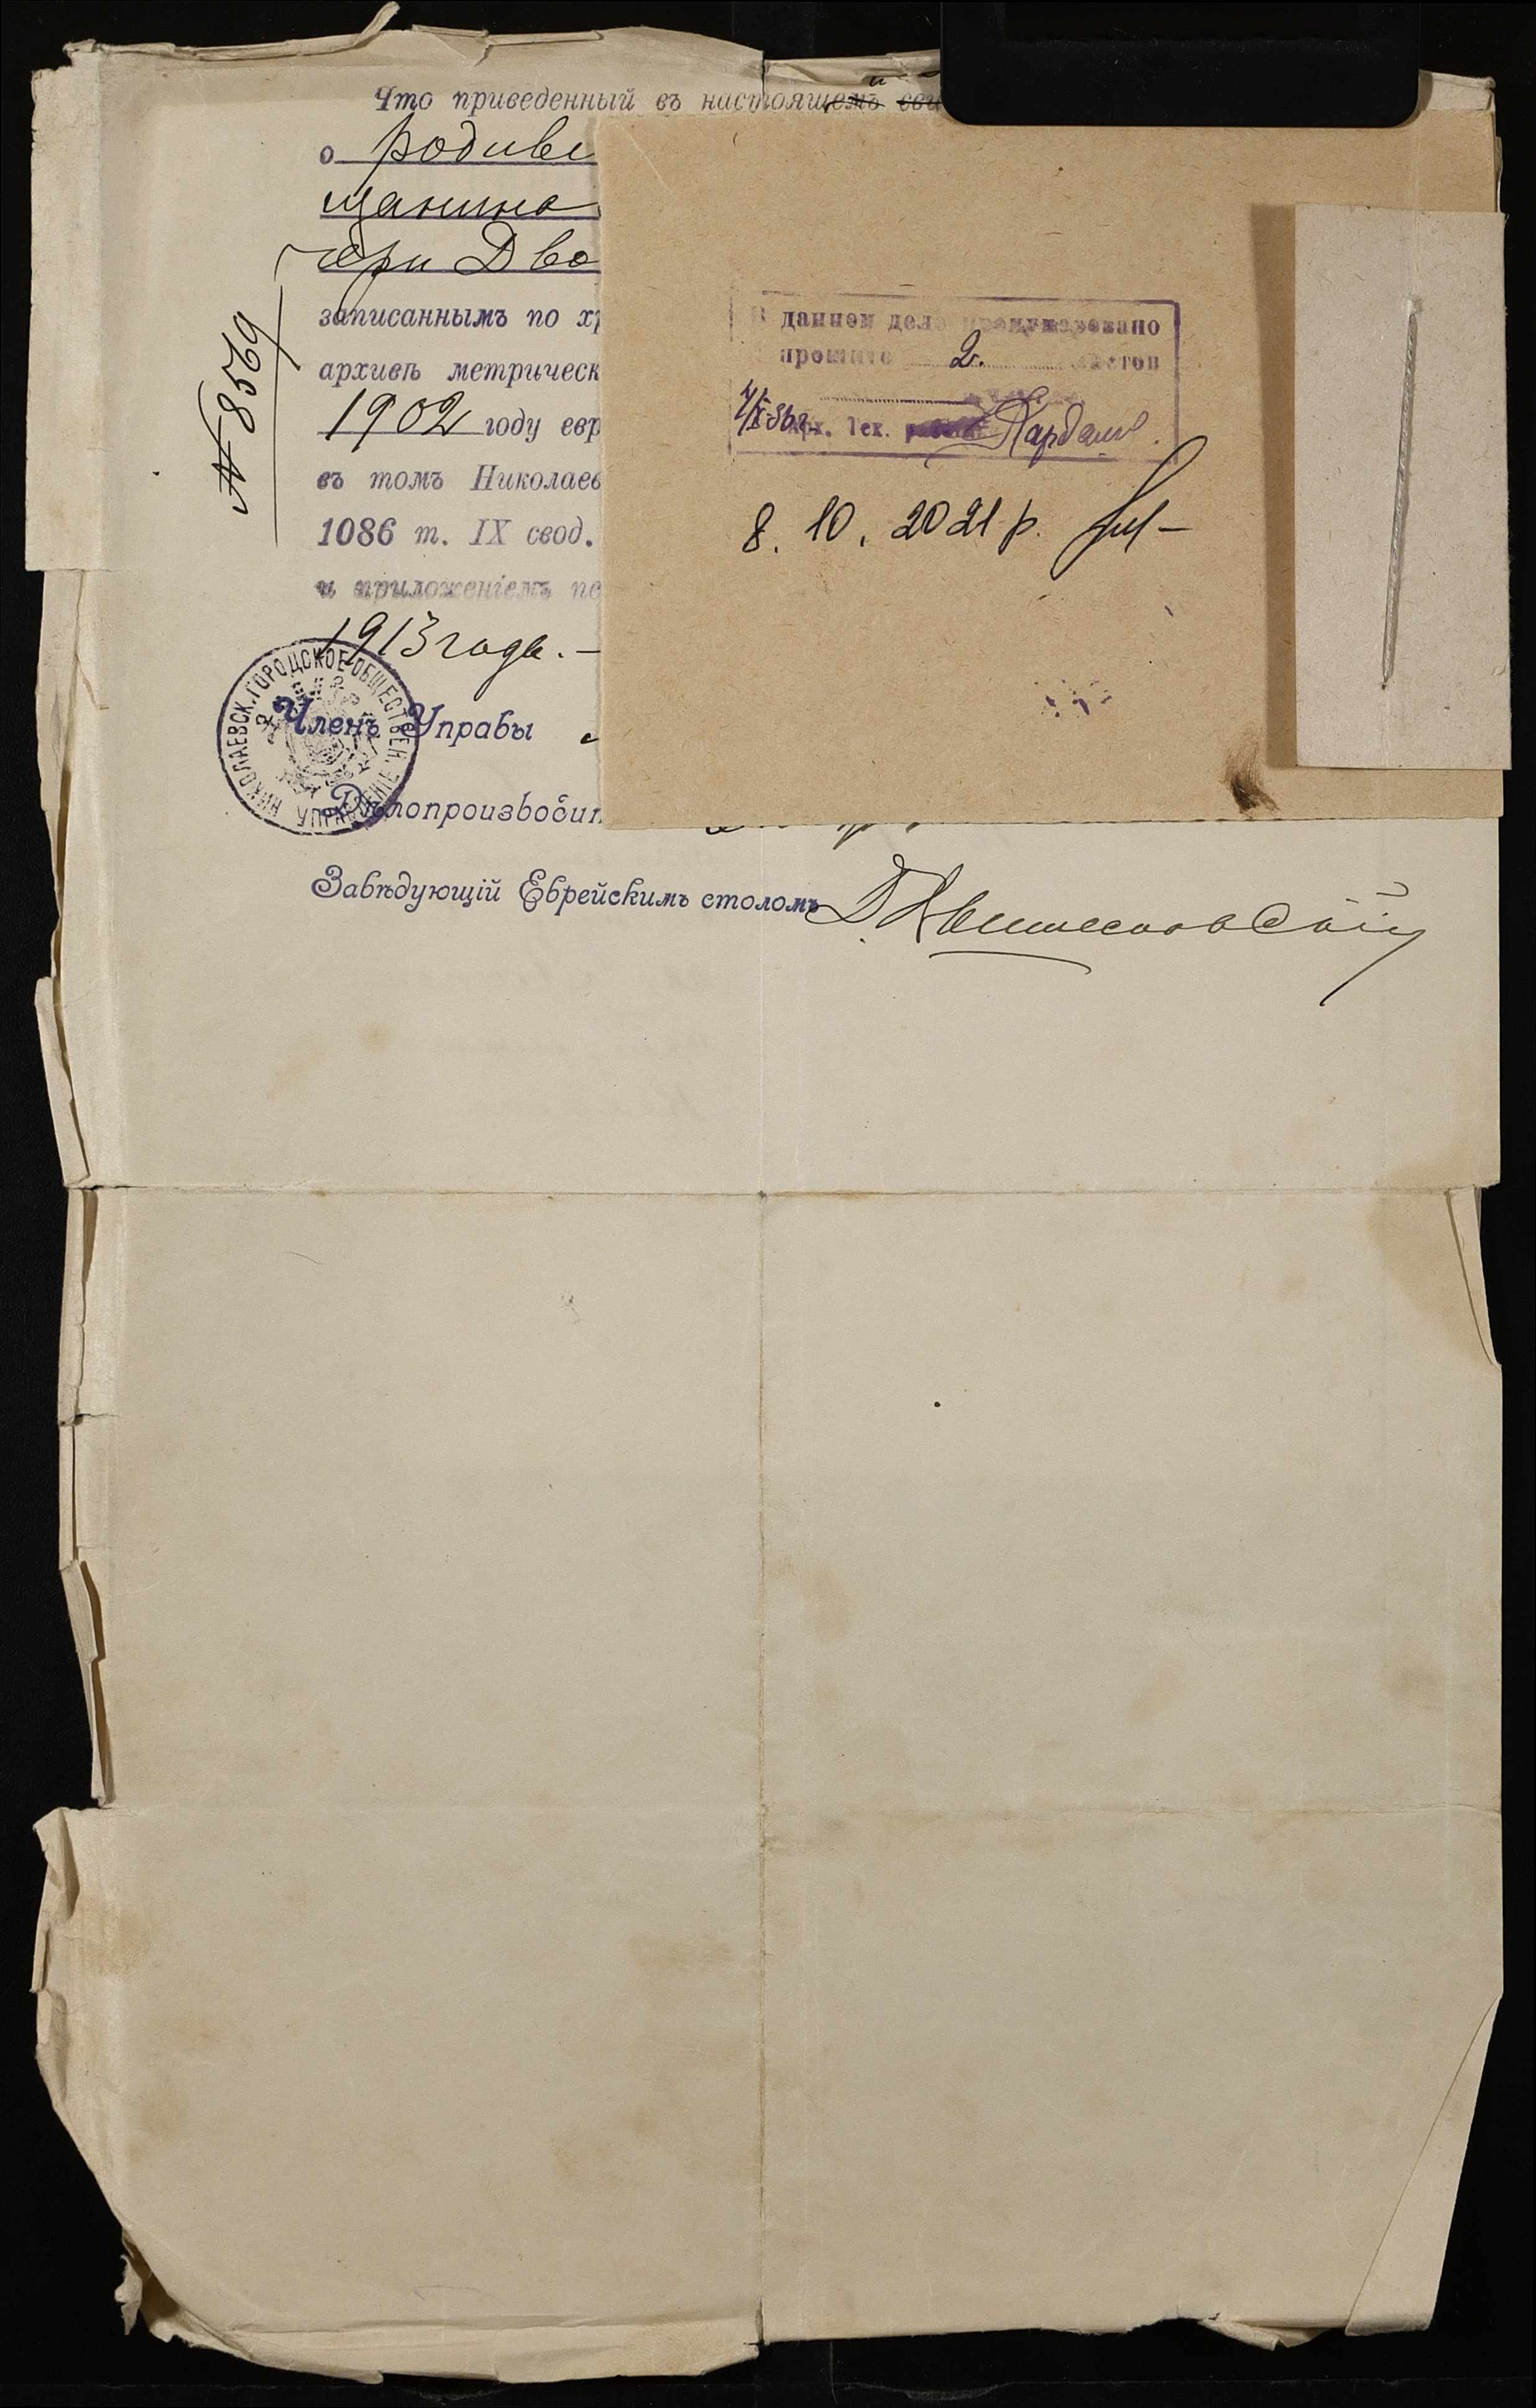 Что приведенный въ настоящемъ сви
и
о родивш
щанина
ери Дво
записаннымъ по хр
архивѣ метрическ
1902 году евр
въ томъ Николаев
1086 т. IX свод.
и приложеніемъ пе
1913 года. —
№ 8569
НИКОЛАЕВСК. ГОРОДСКОЕ ОБЩЕСТВЕН. УПРАВЛЕНІЕ
Членъ Управы
Дѣлопроизводит
Завѣдующій Еврейскимъ столомъ
В данном деле пронумеровано
прошито 2. листов
Арх. Тех.
8. 10. 2021 р.